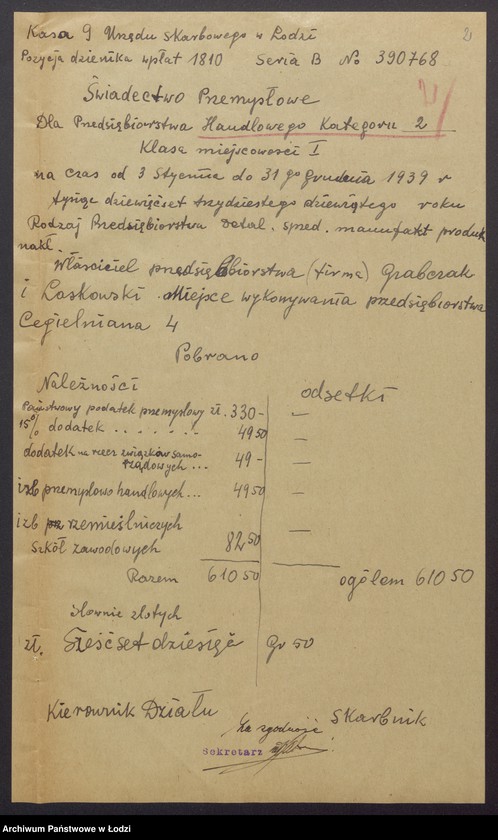 2
Kasa 9 Urzędu skarbowego w Łodzi
Pozycja dziennika wpłat 1810 Seria B No 390768
Świadectwo Przemysłowe
Dla Przedsiębiorstwa Handlowego Kategorii 2
Klasa miejscowości I
na czas od 3 Stycznia do 31 go Grudnia 1939 r
tysiąc dziewięćset trzydziestego dziewiątego roku
Rodzaj Przedsiębiorstwa Detal. sped. manufakt produk
nakł.
Właściciel przedsiębiorstwa (firma) Grabczak
i Laskowski. Miejsce wykonywania przedsiębiorstwa
Cegielniana 4
Pobrano
Należności odsetki
Państwowy podatek przemysłowy zł. 330 - —
15% dodatek . . . . . . . 49 50 —
dodatek na rzecz związków samo-
rządowych ... 49 - —
izb przemysłowo handlowych... 49 50 —
izb rzemieślniczych
szkół zawodowych 82 50 —
Razem 610 50 ogółem 610 50
słownie złotych
zł. Sześćset dziesięć Gr 50
Kierownik Działu Skarbnik
Za zgodność
Sekretarz
Archiwum Państwowe w Łodzi